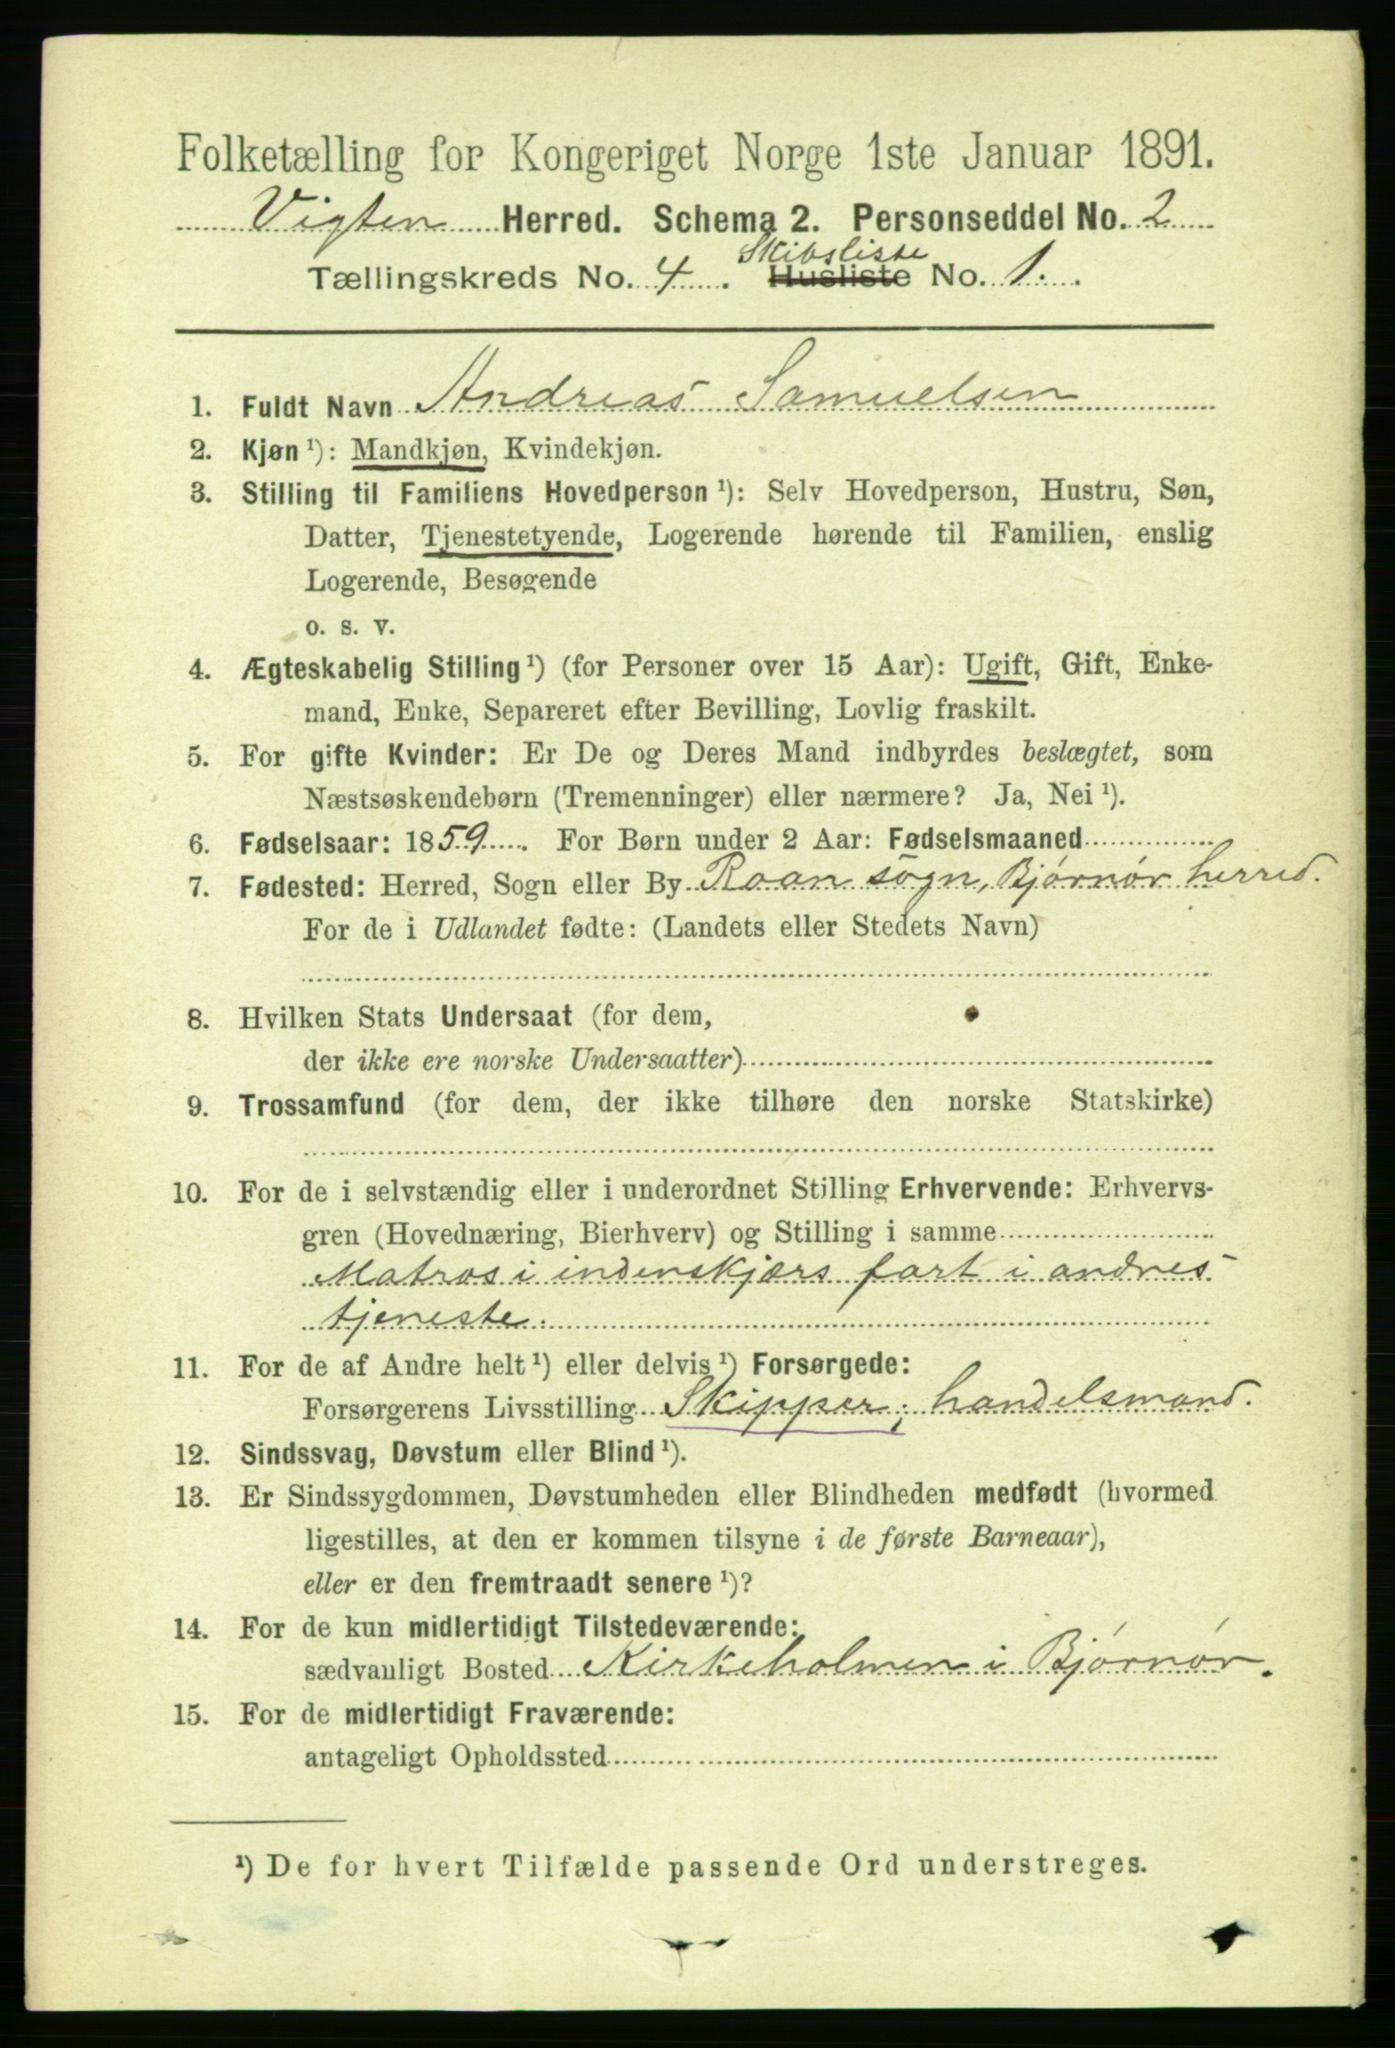 Folketælling for Kongeriget Norge 1ste Januar 1891.
Vigten Herred. Schema 2. Personseddel No. 2
Skibsliste
Tællingskreds No. 4. Husliste No. 1.
1. Fuldt Navn Andreas Samuelsen
2. Kjøn ¹): Mandkjøn, Kvindekjøn.
3. Stilling til Familiens Hovedperson ¹): Selv Hovedperson, Hustru, Søn,
Datter, Tjenestetyende, Logerende hørende til Familien, enslig
Logerende, Besøgende
o. s. v.
4. Ægteskabelig Stilling ¹) (for Personer over 15 Aar): Ugift, Gift, Enke-
mand, Enke, Separeret efter Bevilling, Lovlig fraskilt.
5. For gifte Kvinder: Er De og Deres Mand indbyrdes beslægtet, som
Næstsøskendebørn (Tremenninger) eller nærmere? Ja, Nei ¹).
6. Fødselsaar: 1859. For Børn under 2 Aar: Fødselsmaaned
7. Fødested: Herred, Sogn eller By Roan sogn, Bjørnør herred.
For de i Udlandet fødte: (Landets eller Stedets Navn)
8. Hvilken Stats Undersaat (for dem,
der ikke ere norske Undersaatter)
9. Trossamfund (for dem, der ikke tilhøre den norske Statskirke)
10. For de i selvstændig eller i underordnet Stilling Erhvervende: Erhvervs-
gren (Hovednæring, Bierhverv) og Stilling i samme
Matros i indenskjærs fart i andres
tjeneste.
11. For de af Andre helt ¹) eller delvis ¹) Forsørgede:
Forsørgerens Livsstilling Skipper; handelsmand.
12. Sindssvag, Døvstum eller Blind ¹).
13. Er Sindssygdommen, Døvstumheden eller Blindheden medfødt (hvormed
ligestilles, at den er kommen tilsyne i de første Barneaar),
eller er den fremtraadt senere ¹)?
14. For de kun midlertidigt Tilstedeværende:
sædvanligt Bosted Kirkeholmen i Bjørnør.
15. For de midlertidigt Fraværende:
antageligt Opholdssted
¹) De for hvert Tilfælde passende Ord understreges.